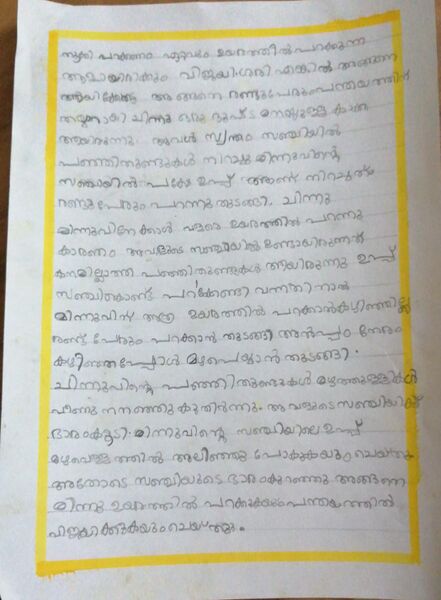 തൂക്കി പറക്കണം ഏറ്റവും ഉയരത്തിൽ പറക്കുന്ന
ആളായിരിക്കും വിജയി. ശരി എങ്കിൽ അങ്ങനെ
ആയിക്കോട്ടെ അങ്ങനെ രണ്ടുപേരും പന്തയത്തിന്
തയ്യാറായി ചിന്നു ഒരു ദുഷ്ട മനസ്സുള്ള കാക്ക
ആയിരുന്നു. അവൾ സ്വന്തം സഞ്ചിയിൽ
പഞ്ഞിതുണ്ടുകൾ നിറച്ചു മിന്നുവിന്റെ
സഞ്ചിയിൽ പക്ഷേ ഉപ്പ് ആണ് നിറച്ചത്
രണ്ടുപേരും പറന്നു തുടങ്ങി. ചിന്നു
മിന്നുവിനേക്കാൾ വളരെ ഉയരത്തിൽ പറന്നു
കാരണം അവളുടെ സഞ്ചിയിൽ ഉണ്ടായിരുന്നത്
കനമില്ലാത്ത പഞ്ഞിതുണ്ടുകൾ ആയിരുന്നു ഉപ്പ്
സഞ്ചികൊണ്ട് പറക്കേണ്ടി വന്നതിനാൽ
മിന്നുവിന് അത്ര ഉയരത്തിൽ പറക്കാൻകഴിഞ്ഞില്ല
രണ്ട് പേരും പറക്കാൻ തുടങ്ങി അൽപ്പം നേരം
കഴിഞ്ഞപ്പോൾ മഴപെയ്യാൻ തുടങ്ങി.
ചിന്നുവിന്റെ പഞ്ഞിതുണ്ടുകൾ മഴത്തുള്ളികൾ
വീണു നനഞ്ഞു കുതിർന്നു. അവളുടെ സഞ്ചിയ്ക്ക്
ഭാരംകൂടി. മിന്നുവിന്റെ സഞ്ചിയിലെ ഉപ്പ്
മഴവെള്ളത്തിൽ അലിഞ്ഞു പോകുകയും ചെയ്തു
അതോടെ സഞ്ചിയുടെ ഭാരംകുറഞ്ഞു അങ്ങനെ
മിന്നു ഉയരത്തിൽ പറക്കുകയും പന്തയത്തിൽ
വിജയിക്കുകയും ചെയ്തു.